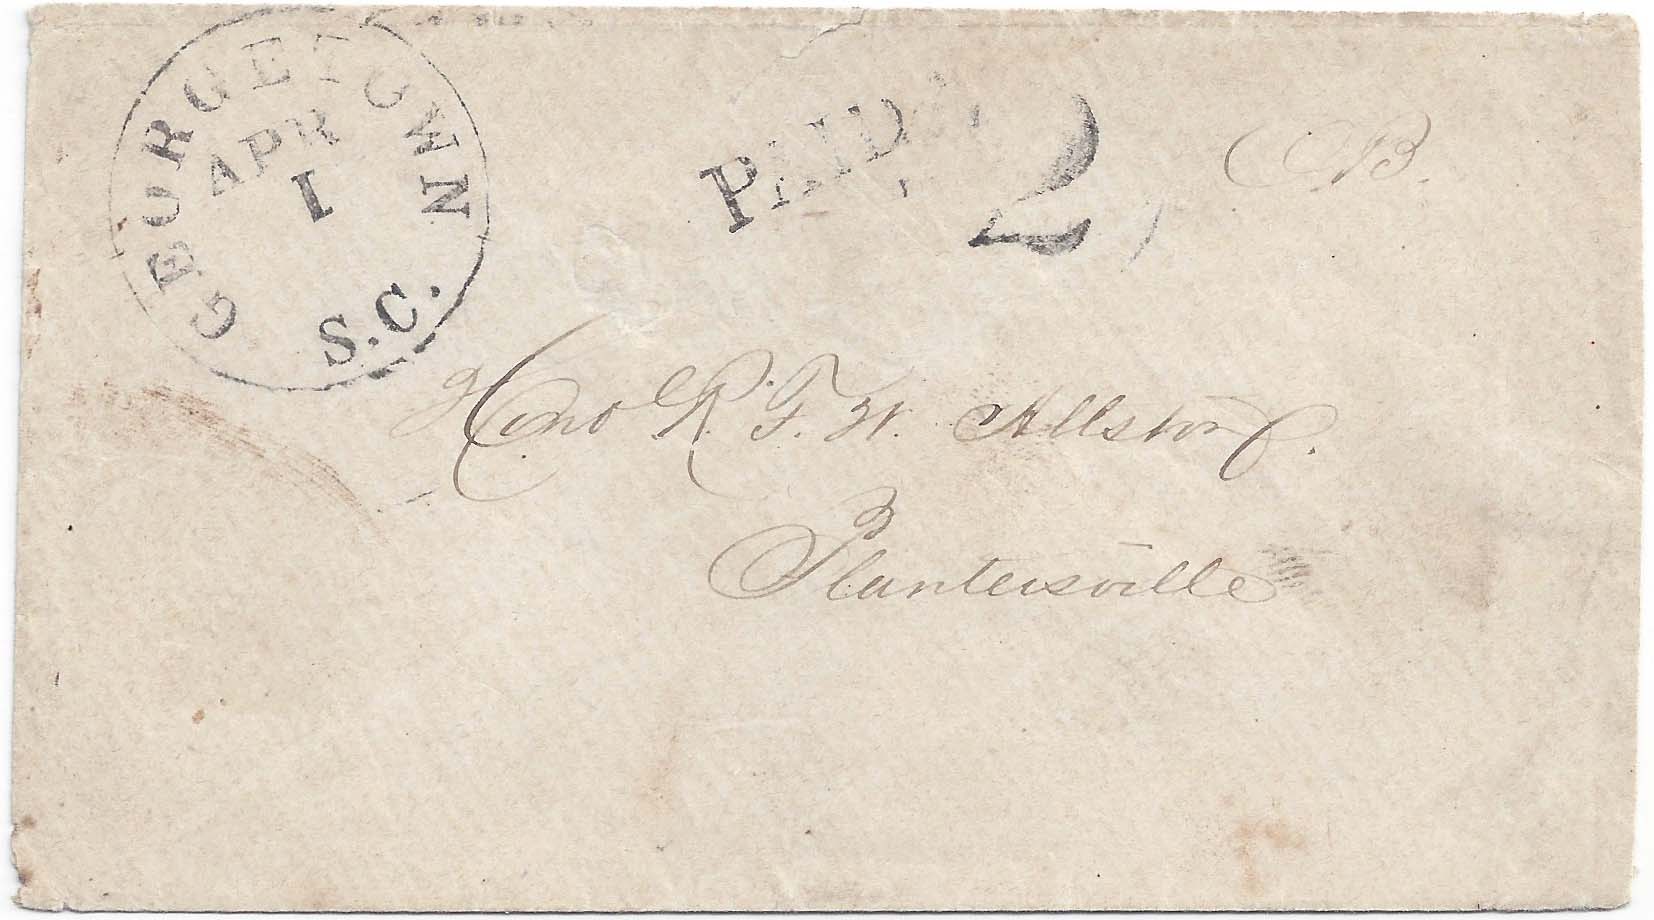 GEORGETOWN
APR
1
S.C.
PAID
2
Hon R. F. W. Allston
Plantersville